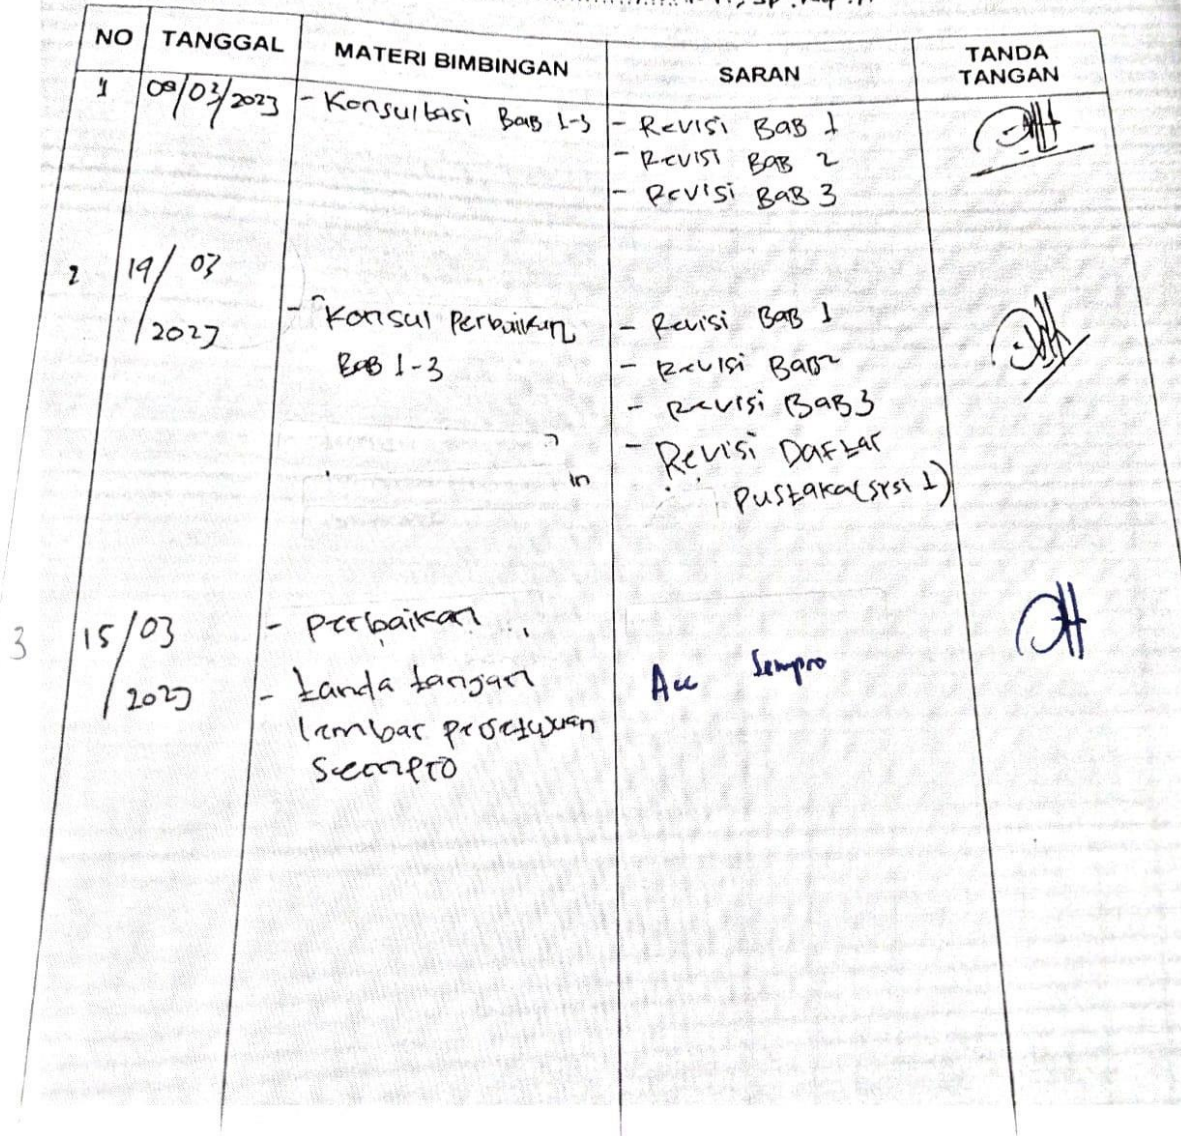 NO TANGGAL MATERI BIMBINGAN SARAN TANDA TANGAN
1 08/03/2023 - Konsultasi Bab 1-3 - Revisi Bab 1
- Revisi Bab 2
- Revisi Bab 3
2 19/03
/2023 - Konsul Perbaikan - Revisi Bab 1
Bab 1-3 - Revisi Bab 2
- Revisi Bab 3
- Revisi Daftar
in Pustaka (sisi 1)
3 15/03 - Perbaikan
/2023 - tanda tangan Acc Sempro
lembar persetujuan
Sempro